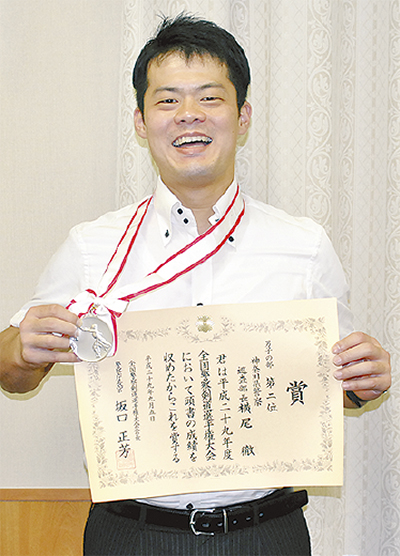 賞
男子の部 第二位
神奈川県警察
巡査部長 横尾 徹
君は平成二十九年度
全国警察剣道選手権大会
において頭書の成績を
収めたからこれを賞する
平成二十九年九月五日
全国警察剣道選手権大会会長
坂口 正芳